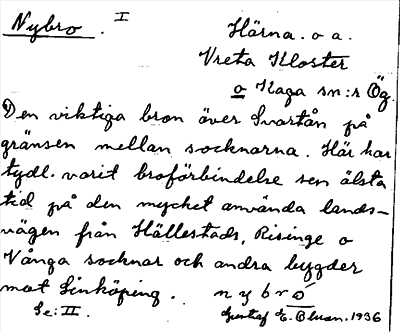 Nybro. I
Härna. o a.
Vreta Kloster
o Kaga sn:r Ög.
Den viktiga bron över Svartån på
gränsen mellan socknarna. Här har
tydl. varit broförbindelse sen älsta
tid på den mycket använda lands-
vägen från Hällestads, Risinge o
Vånga socknar och andra bygder
mot Linköping. n y b r ó
Se: II. Gustaf E. Olsson. 1936